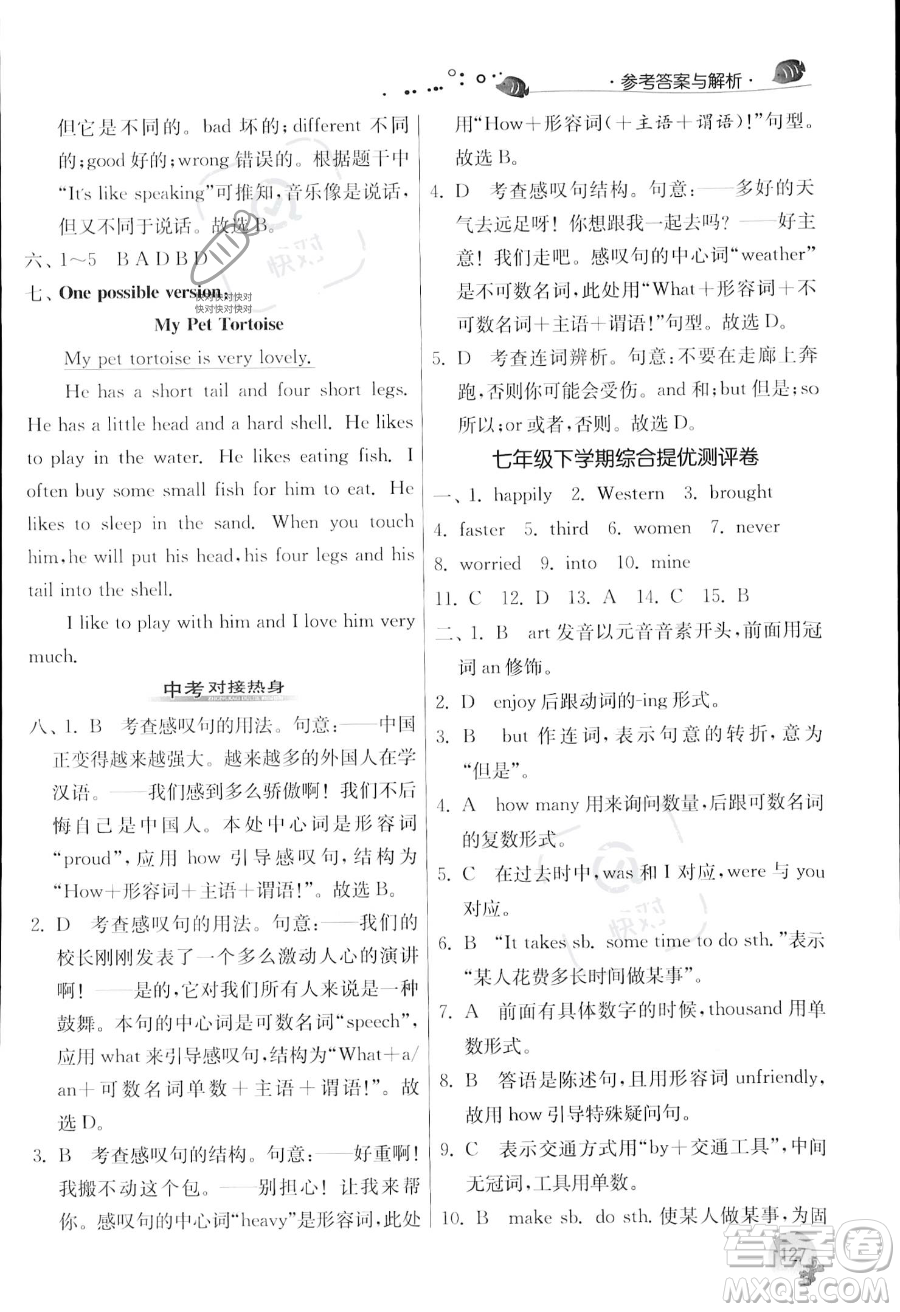 ·参考答案与解析·
但它是不同的。bad 坏的;different 不同
的;good 好的;wrong 错误的。根据题干中
“It's like speaking”可推知,音乐像是说话,
但又不同于说话。故选B。
六、1～5 B A D B D
七、One possible version:
My Pet Tortoise
My pet tortoise is very lovely.
He has a short tail and four short legs.
He has a little head and a hard shell. He likes
to play in the water. He likes eating fish. I
often buy some small fish for him to eat. He
likes to sleep in the sand. When you touch
him,he will put his head,his four legs and his
tail into the shell.
I like to play with him and I love him very
much.
中考 对接热身
八、1. B 考查感叹句的用法。句意:——中国
正变得越来越强大。越来越多的外国人在学
汉语。——我们感到多么骄傲啊！我们不后
悔自己是中国人。本处中心词是形容词
“proud”,应用 how 引导感叹句,结构为
“How＋形容词＋主语＋谓语!”。故选B。
2. D 考查感叹句的用法。句意:——我们的
校长刚刚发表了一个多么激动人心的演讲
啊！——是的,它对我们来说是一种
鼓舞。本句的中心词是可数名词“speech”,
应用 what 来引导感叹句,结构为“What＋a/
an＋可数名词单数＋主语＋谓语!”。故
选D。
3. B 考查感叹句的结构。句意:——好重啊！
我搬不动这个包。——别担心！让我来帮
你。感叹句的中心词“heavy”是形容词,此处
用“How＋形容词(＋主语＋谓语)!”句型。
故选B。
4. D 考查感叹句结构。句意:——多好的天
气去远足呀！你想跟我一起去吗？——好主
意！我们走吧。感叹句的中心词“weather”
是不可数名词,此处用“What＋形容词＋
不可数名词＋主语＋谓语!”句型。故选D。
5. D 考查连词辨析。句意:不要在走廊上奔
跑,否则你可能会受伤。and 和;but 但是;so
所以;or 或者,否则。故选D。
七年级下学期综合提优测评卷
一、1. happily 2. Western 3. brought
4. faster 5. third 6. women 7. never
8. worried 9. into 10. mine
11. C 12. D 13. A 14. C 15. B
二、1. B art 发音以元音音素开头,前面用冠
词 an 修饰。
2. D enjoy 后跟动词的-ing 形式。
3. B but 作连词,表示句意的转折,意为
“但是”。
4. A how many 用来询问数量,后跟可数名词
的复数形式。
5. C 在过去时中,was 和 I 对应,were 与 you
对应。
6. B “It takes sb. some time to do sth.”表示
“某人花费多长时间做某事”。
7. A 前面有具体数字的时候,thousand 用单
数形式。
8. B 答语是陈述句,且用形容词 unfriendly,
故用 how 引导特殊疑问句。
9. C 表示交通方式用“by＋交通工具”,中间
无冠词,工具用单数。
10. B make sb. do sth. 使某人做某事,为固
127
快对快对快对
快对快对快对
快对
快对
答案圈
MXQE.COM